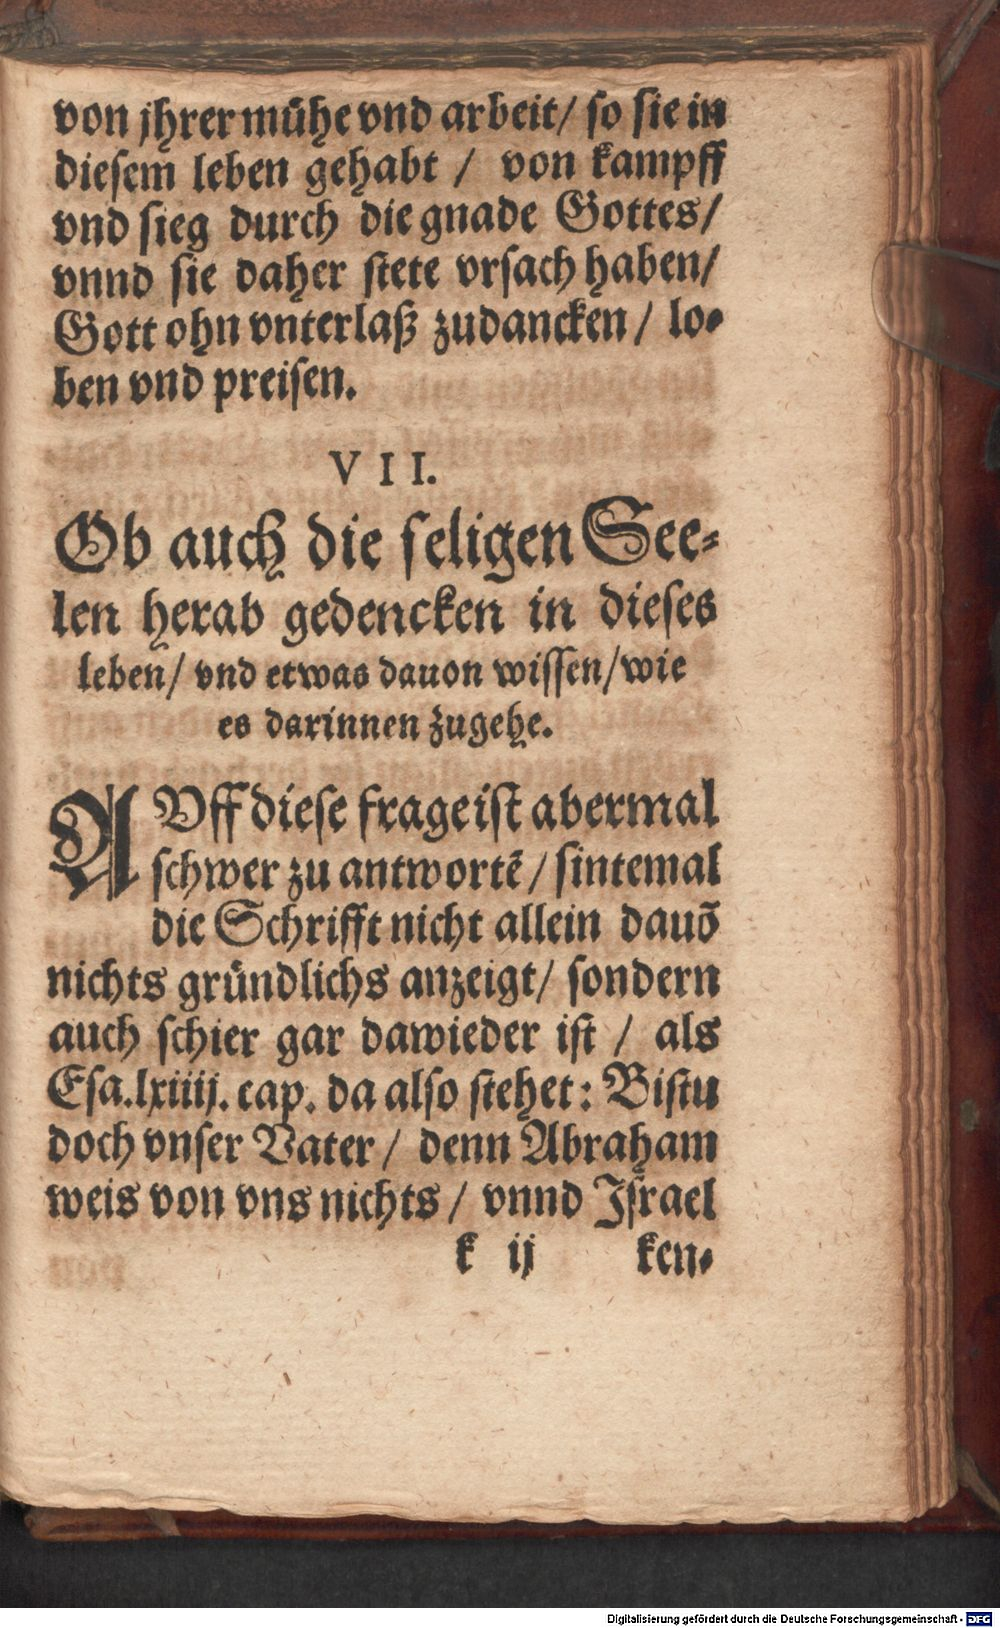 von jhrer mühe vnd arbeit/ so sie in
diesem leben gehabt / von kampff
vnd sieg durch die gnade Gottes/
vnnd sie daher stete vrsach haben/
Gott ohn vnterlaß zudancken / lo-
ben vnd preisen.
VII.
Ob auch die seligen See-
len herab gedencken in dieses
leben/ vnd etwas dauon wissen/ wie
es darinnen zugehe.
AVff diese frage ist abermal
schwer zu antwortē / sintemal
die Schrifft nicht allein dauō
nichts gründlichs anzeigt/ sondern
auch schier gar dawieder ist / als
Esa.lxiiij. cap. da also stehet: Bistu
doch vnser Vater / denn Abraham
weis von vns nichts / vnnd Israel
k ij ken-
Digitalisierung gefördert durch die Deutsche Forschungsgemeinschaft - DFG